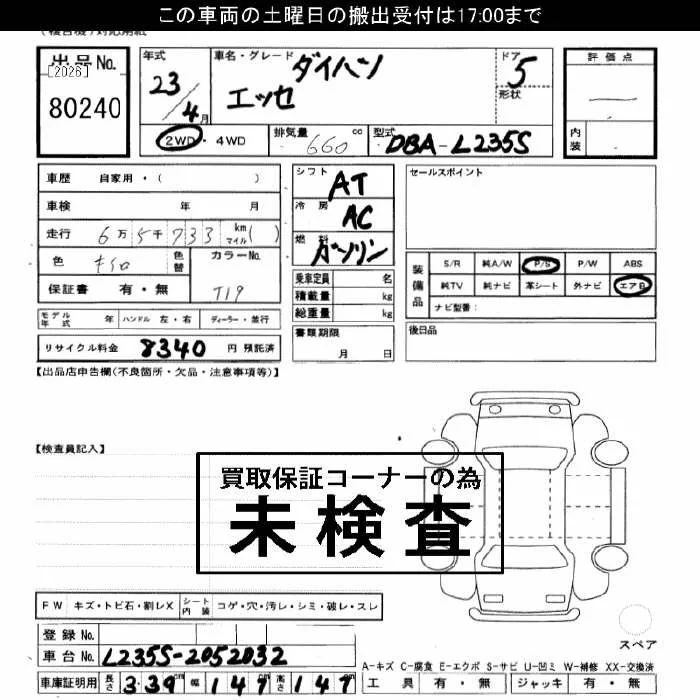 この車両の土曜日の搬出受付は17:00まで
(複合機)対応用紙
出品No.
[2026]
80240
年式
23/4月
車名・グレード
ダイハツ
エッセ
ドア
5
形状
評価点
—
内装
2WD・4WD
排気量 660 cc
型式 DBA-L235S
車歴 自家用・( )
車検 年 月
走行 6万5千733 km マイル( )
色 キイロ 色替
カラーNo. T19
保証書 有・無
モデル年式 年 ハンドル 左・右 ディーラー・並行
リサイクル料金 8340 円 預託済
シフト AT
冷房 AC
燃料 ガソリン
乗車定員 名
積載量 kg
総重量 kg
書類期限
月 日
セールスポイント
装備品
S/R 純A/W P/S P/W ABS
純TV 純ナビ 革シート 外ナビ エアB
ナビ型番:
後日品
【出品店申告欄(不良箇所・欠品・注意事項等)】
【検査員記入】
買取保証コーナーの為
未検査
FW キズ・トビ石・割レX シート内装 コゲ・穴・汚レ・シミ・破レ・スレ
登録No.
車台No. L235S-2052032
車庫証明用 長さ 3.39 幅 147 高さ 147
スペア
A-キズ C-腐食 E-エクボ S-サビ U-凹ミ W-補修 XX-交換済
工具 有・無 ジャッキ 有・無